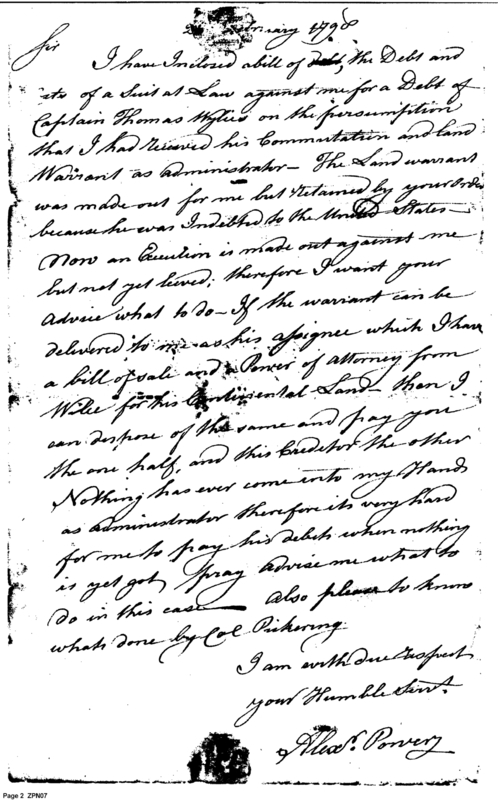 February 1798
Sir
I have Inclosed a bill of debt, the Debt and
of a Suit at Law against me for a Debt of
Captain Thomas Wylies on the persumption
that I had received his Commutation and Land
Warrant as administrator – The Land warrant
was made out for me but retained by your Order
because he was Indebted to the United States –
Now an Execution is made out against me
but not yet leived; therefore I want your
Advice what to do – If the warrant can be
delivered to me as his assignee which I have
a bill of sale and a Power of attorney from
Wilie for his Continental Land – than I
can dispose of the same and pay you
the one half, and this Creditor the other
Nothing has ever come into my Hands
as administrator therefore its very hard
for me to pay his debts when nothing
is yet got, pray advise me what to
do in this case — Also please to know
whats done by Col Pickering
I am with due respect
your Humble Servt.
Alexr. Power
Page 2 ZPN07